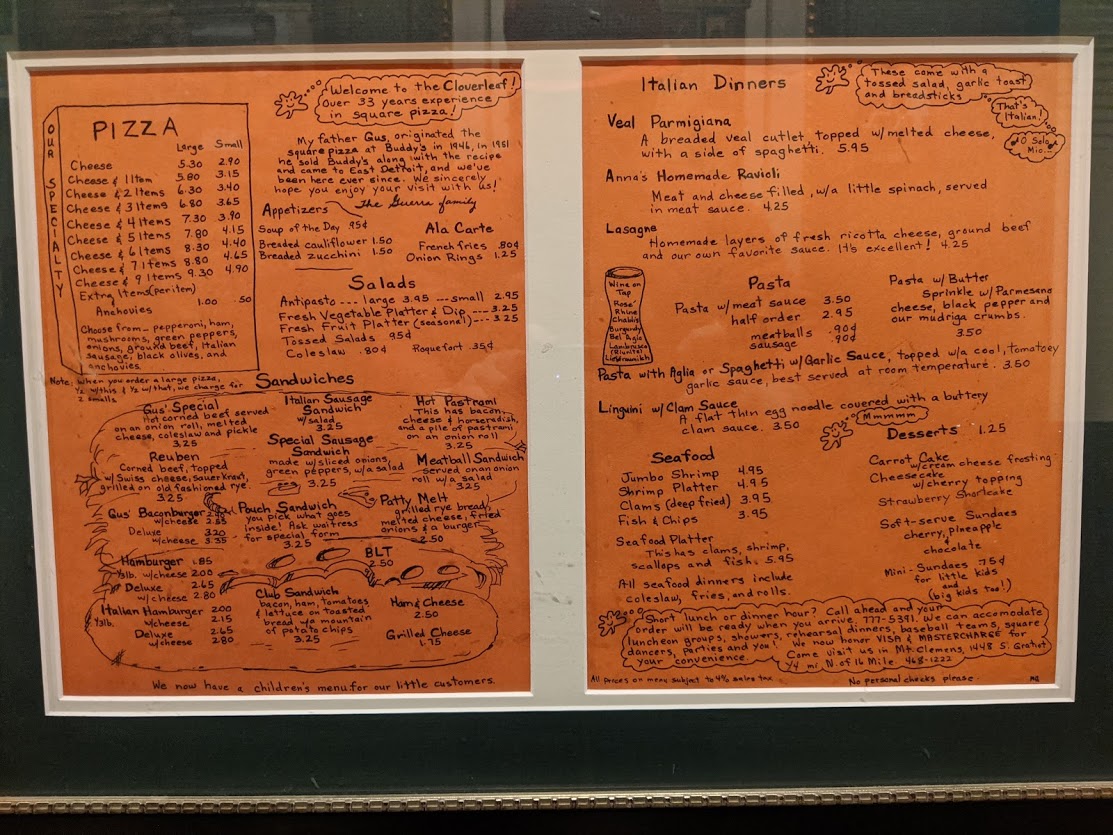 Welcome to the Cloverleaf!
Over 33 years experience
in square pizza!
OUR SPECIALTY
PIZZA
Large Small
Cheese 5.30 2.90
Cheese & 1 Item 5.80 3.15
Cheese & 2 Items 6.30 3.40
Cheese & 3 Items 6.80 3.65
Cheese & 4 Items 7.30 3.90
Cheese & 5 Items 7.80 4.15
Cheese & 6 Items 8.30 4.40
Cheese & 7 Items 8.80 4.65
Cheese & 9 Items 9.30 4.90
Extra Items (per item)
1.00 .50
Anchovies
Choose from - pepperoni, ham,
mushrooms, green peppers,
onions, ground beef, Italian
sausage, black olives, and
anchovies
Note: when you order a large pizza,
1/2 w/this & 1/2 w/that, we charge for
2 smalls
My father Gus, originated the
square pizza at Buddy's in 1946, in 1951
he sold Buddy's along with the recipe
and came to East Detroit, and we've
been here ever since. We sincerely
hope you enjoy your visit with us!
The Guerra family
Appetizers
Soup of the Day .95¢
Breaded cauliflower 1.50
Breaded zucchini 1.50
Ala Carte
French fries .80¢
Onion Rings 1.25
Salads
Antipasto --- large 3.95 --- small 2.95
Fresh Vegetable Platter & Dip --- 3.25
Fresh Fruit Platter (seasonal) --- 3.25
Tossed Salads .95¢
Coleslaw .80¢ Roquefort .35¢
Sandwiches
Gus' Special
Hot corned beef served
on an onion roll, melted
cheese, coleslaw and pickle
3.25
Italian Sausage
Sandwich
w/salad
3.25
Hot Pastrami
This has bacon,
cheese & horseradish,
and a pile of pastrami
on an onion roll
3.25
Special Sausage
Sandwich
made w/sliced onions,
green peppers, w/a salad
3.25
Reuben
Corned beef, topped
w/Swiss cheese, sauerkraut,
grilled on old fashioned rye.
3.25
Meatball Sandwich
served on an onion
roll w/a salad
3.25
Gus' Baconburger
w/cheese 2.55
Deluxe 3.20
w/cheese 3.35
Pouch Sandwich
you pick what goes
inside! Ask waitress
for special form
3.25
Patty Melt
grilled rye bread,
melted cheese, fried
onions & a burger
2.50
BLT
2.50
Hamburger 1.85
1/3lb. w/cheese 2.00
Deluxe 2.65
w/cheese 2.80
Italian Hamburger 2.00
1/3lb. w/cheese 2.15
Deluxe 2.65
w/cheese 2.80
Club Sandwich
bacon, ham, tomatoes
& lettuce on toasted
bread w/a mountain
of potato chips
3.25
Ham & Cheese
2.50
Grilled Cheese
1.75
We now have a children's menu for our little customers.
Italian Dinners
These come with a
tossed salad, garlic toast
and breadsticks
That's
Italian!
O Solo
Mio...
Veal Parmigiana
A breaded veal cutlet, topped w/melted cheese,
with a side of spaghetti. 5.95
Anna's Homemade Ravioli
Meat and cheese filled, w/a little spinach, served
in meat sauce. 4.25
Lasagne
Homemade layers of fresh ricotta cheese, ground beef
and our own favorite sauce. It's excellent! 4.25
Wine on
Tap
Rosé
Rhine
Chablis
Burgundy
Bel Agio
Lambrusco
(Riunite)
Liebfraumilch
Pasta
Pasta w/meat sauce 3.50
half order 2.95
meatballs .90¢
sausage .90¢
Pasta w/Butter
Sprinkle w/Parmesano
cheese, black pepper and
our mudriga crumbs.
3.50
Pasta with Aglia or Spaghetti w/Garlic Sauce, topped w/a cool, tomatoey
garlic sauce, best served at room temperature. 3.50
Linguini w/Clam Sauce
A flat thin egg noodle covered with a buttery
clam sauce. 3.50
Mmmmm
Seafood
Jumbo Shrimp 4.95
Shrimp Platter 4.95
Clams (deep fried) 3.95
Fish & Chips 3.95
Seafood Platter
This has clams, shrimp,
scallops and fish. 5.95
All seafood dinners include
coleslaw, fries, and rolls.
Desserts 1.25
Carrot Cake
w/cream cheese frosting
Cheesecake
w/cherry topping
Strawberry Shortcake
Soft-serve Sundaes
cherry, pineapple
&
chocolate
Mini-Sundaes .75¢
for little kids
and
(big kids too!)
Short lunch or dinner hour? Call ahead and your
order will be ready when you arrive. 777-5391. We can accomodate
luncheon groups, showers, rehearsal dinners, baseball teams, square
dancers, parties and you! We now honor VISA & MASTERCHARGE for
your convenience. Come visit us in Mt. Clemens, 1448 S. Gratiot
1/4 mi. N. of 16 Mile. 468-1222
All prices on menu subject to 4% sales tax No personal checks please